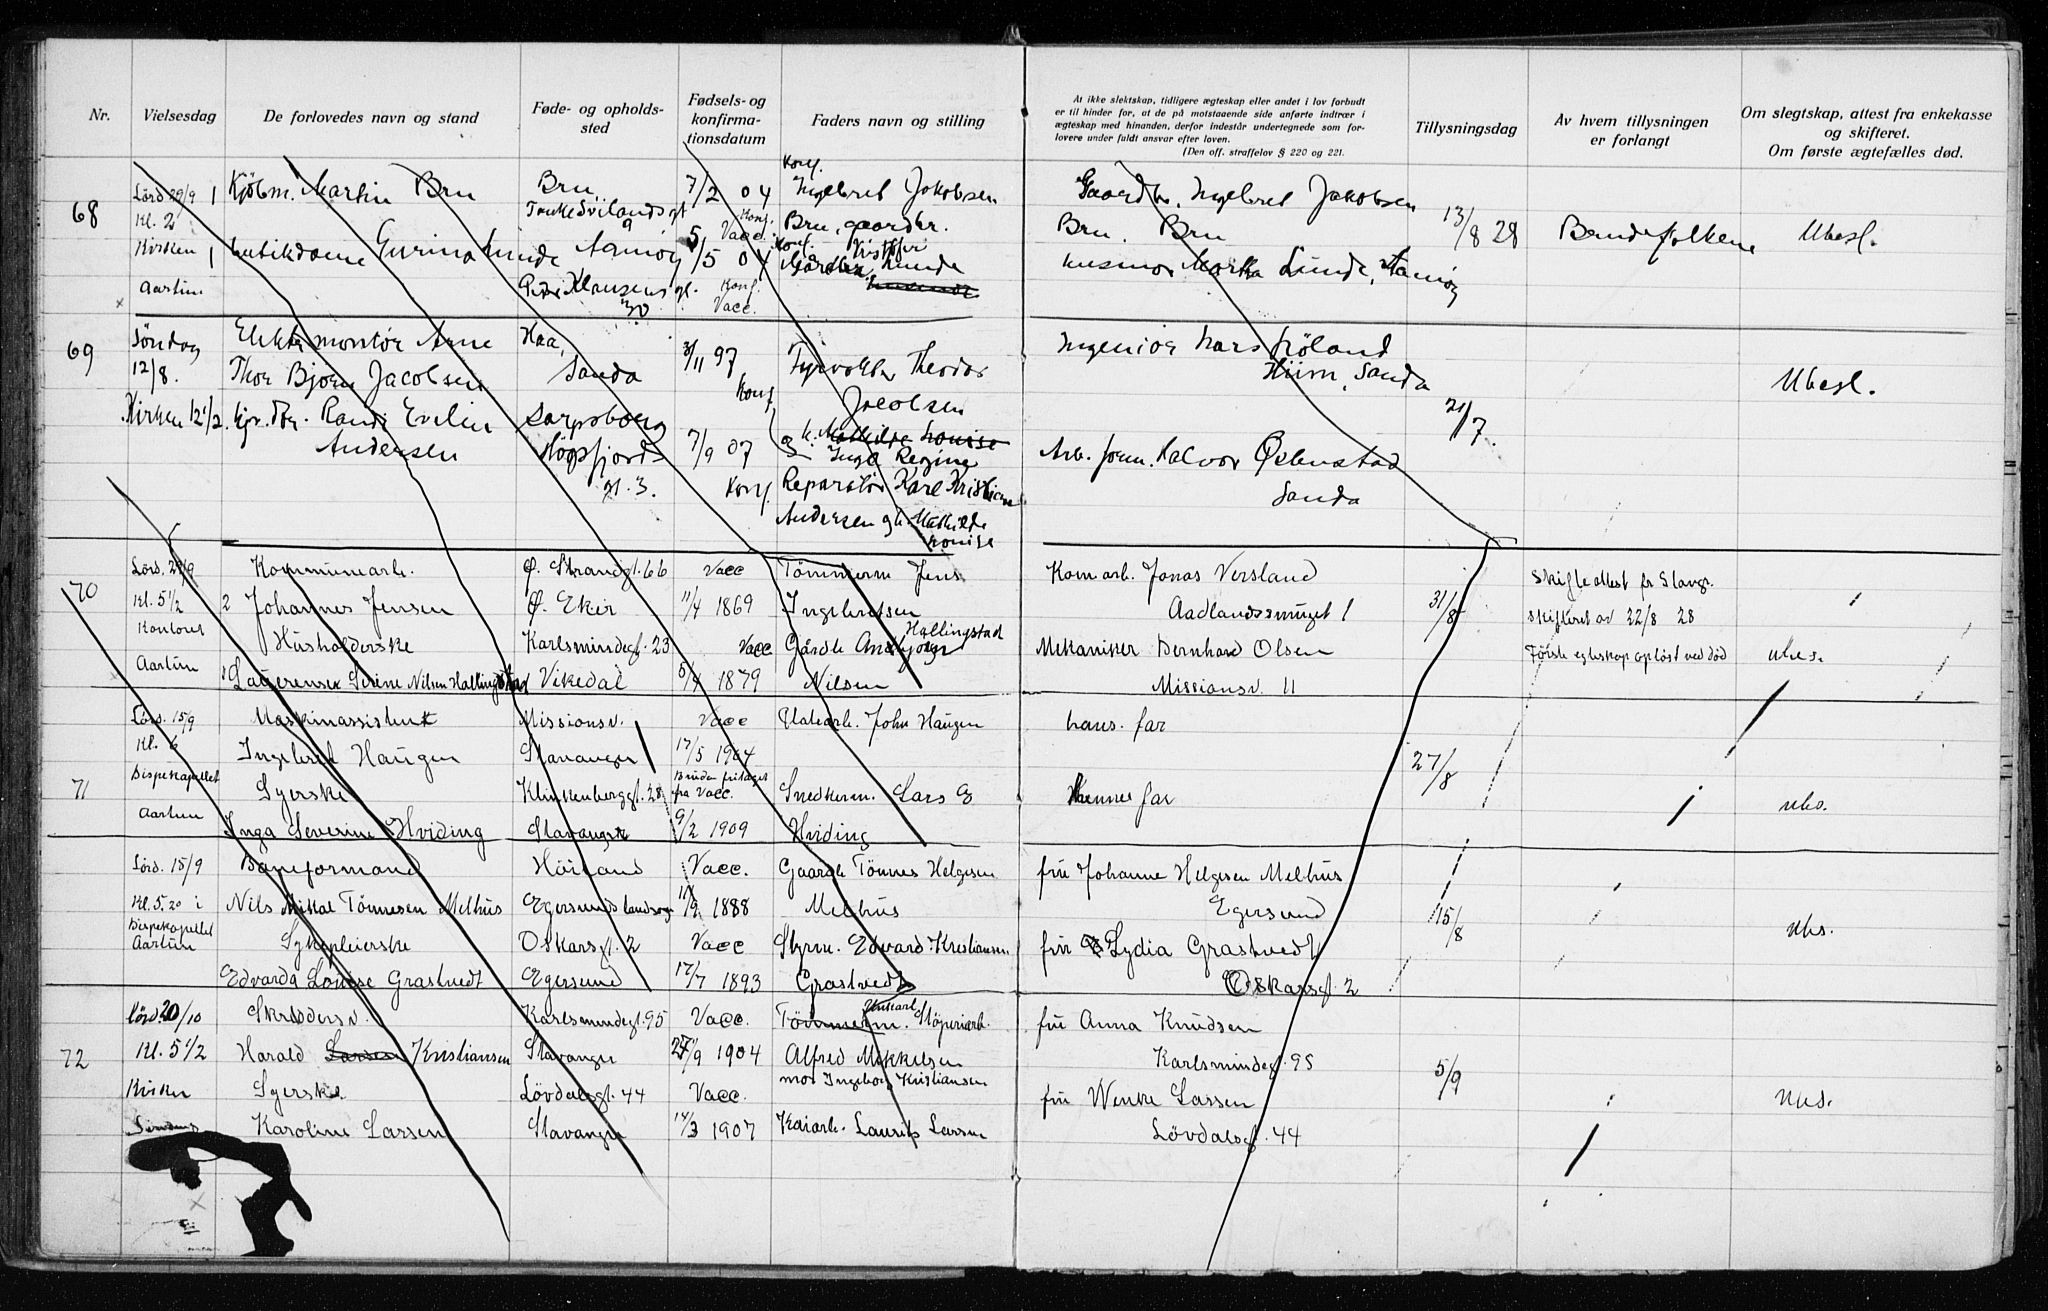 Nr.
Vielsesdag
De forlovedes navn og stand
Føde- og opholds-
sted
Fødsels- og
konfirma-
tionsdatum
Faders navn og stilling
At ikke slektskap, tidligere ægteskap eller andet i lov forbudt
er til hinder for, at de på motstaaende side anførte indtrær i
ægteskap med hinanden, derfor indestår undertegnede som for-
lovere under fuldt ansvar efter loven.
(Den off. straffelov § 220 og 221.
Tillysningsdag
Av hvem tillysningen
er forlangt
Om slegtskap, attest fra enkekasse
og skifteret.
Om første ægtefælles død.
68
Lörd 29/9 1
Kl. 2
Kirken 1
Aartun
Kjöbm. Martin Bru
Butikdame Gurina Lunde
Bru
Amöy
7/2 04
Konf.
Vacc.
5/5 04
Konf.
Vacc.
Konf.
Ingebret Jakobsen
Bru, gaardbr.
Konf.
Lunde
Gaardbr. Ingebret Jakobsen
Bru. Bru
Martha Lunde, Amöy
13/8 28
Brudefolkene
Ubesl.
69
Söndag
12/8.
Kirken 12 1/2
Elektr. montör Arne
Thor Bjørn Jacobsen
Randi Evelin
Andersen
Haa,
Sanda
Sarpsborg
Högsfjords
gt. 3.
3/11 97
Konf.
7/9 07
Konf.
Fyrvokter Theodor
Jacobsen
Mathilde Louise
Inga Regine
Reparatör Karl Kristian
Andersen og h. Mathilde
Louise
Ingeniør Lars Höland
Hiim, Sanda
Arb. form. Halvor Östenstad
Sanda
21/7
Ubesl.
70
Lörd. 29/9
Kl. 5 1/2
Kontoret
Aartun
Kommunearb.
2 Johannes Jensen
Husholderske
1 Laurense Serine Nilsen Hallingstad
Ø. Strandgt. 66
Ø. Eker
Karlsmindegt. 23
Vikedal
Vacc
11/4 1869
Vacc
5/4 1879
Tömmerm. Jens
Ingebretsen
Hallingstad
Nilsen
Kom arb. Jonas Versland
Aadlandssmuget 1
Mekaniker Bernhard Olsen
Missionsv. 11
31/8
Skifteattest fr Stavgr.
skifteret av 22/8 28
Förste egteskap oplöst ved död
ubes.
71
Lörd. 15/9
Kl. 6
Bispekapellet
Aartun
Maskinassistent
Ingebret Haugen
Syerske
Inga Severine Hviding
Missionsv.
Stavanger
Klinkenberggt. 28
Stavanger
Vacc
17/5 1904
Bruden fritaget
fra Vacc.
9/2 1909
Utearb. John Haugen
Snedkerm. Lars E
Hviding
hans. far
Hennes far
27/8
ubs.
Lörd. 15/9
Kl. 5.20 i
Bispekapellet
Aartun
Baneformand
Nils Mikal Tönnesen Melhus
Sykepleierske
Edvarda Louise Grastvedt
Höiland
Egersunds landsogn
Oskarsgt. 2
Egersund
Vacc.
11/9 1888
Vacc
17/7 1893
Gaardb Tönnes Helgesen
Melhus
Styrm. Edvard Kristiansen
Grastvedt
fru Johanne Helgesen Melhus
Egersund
fru Lydia Grastvedt
Oskarsgt. 2
15/8
ubs.
72
Lörd. 20/10
Kl. 5 1/2
Kirken
Skræddersv.
Harald Larsen Kristiansen
Syerske
Karoline Larsen
Karlsmindegt. 95
Stavanger
Lövdalsgt. 44
Stavanger
Vacc.
27/9 1904
Vacc.
14/3 1907
Tömmerm. Stöperiarb.
Alfred Mikkelsen
mor Ingeborg Kristiansen
Kaiarb. Laurits Larsen
fru Anna Knudsen
Karlsmindegt. 95
fru Wenke Larsen
Lövdalsgt. 44
5/9
ubs.